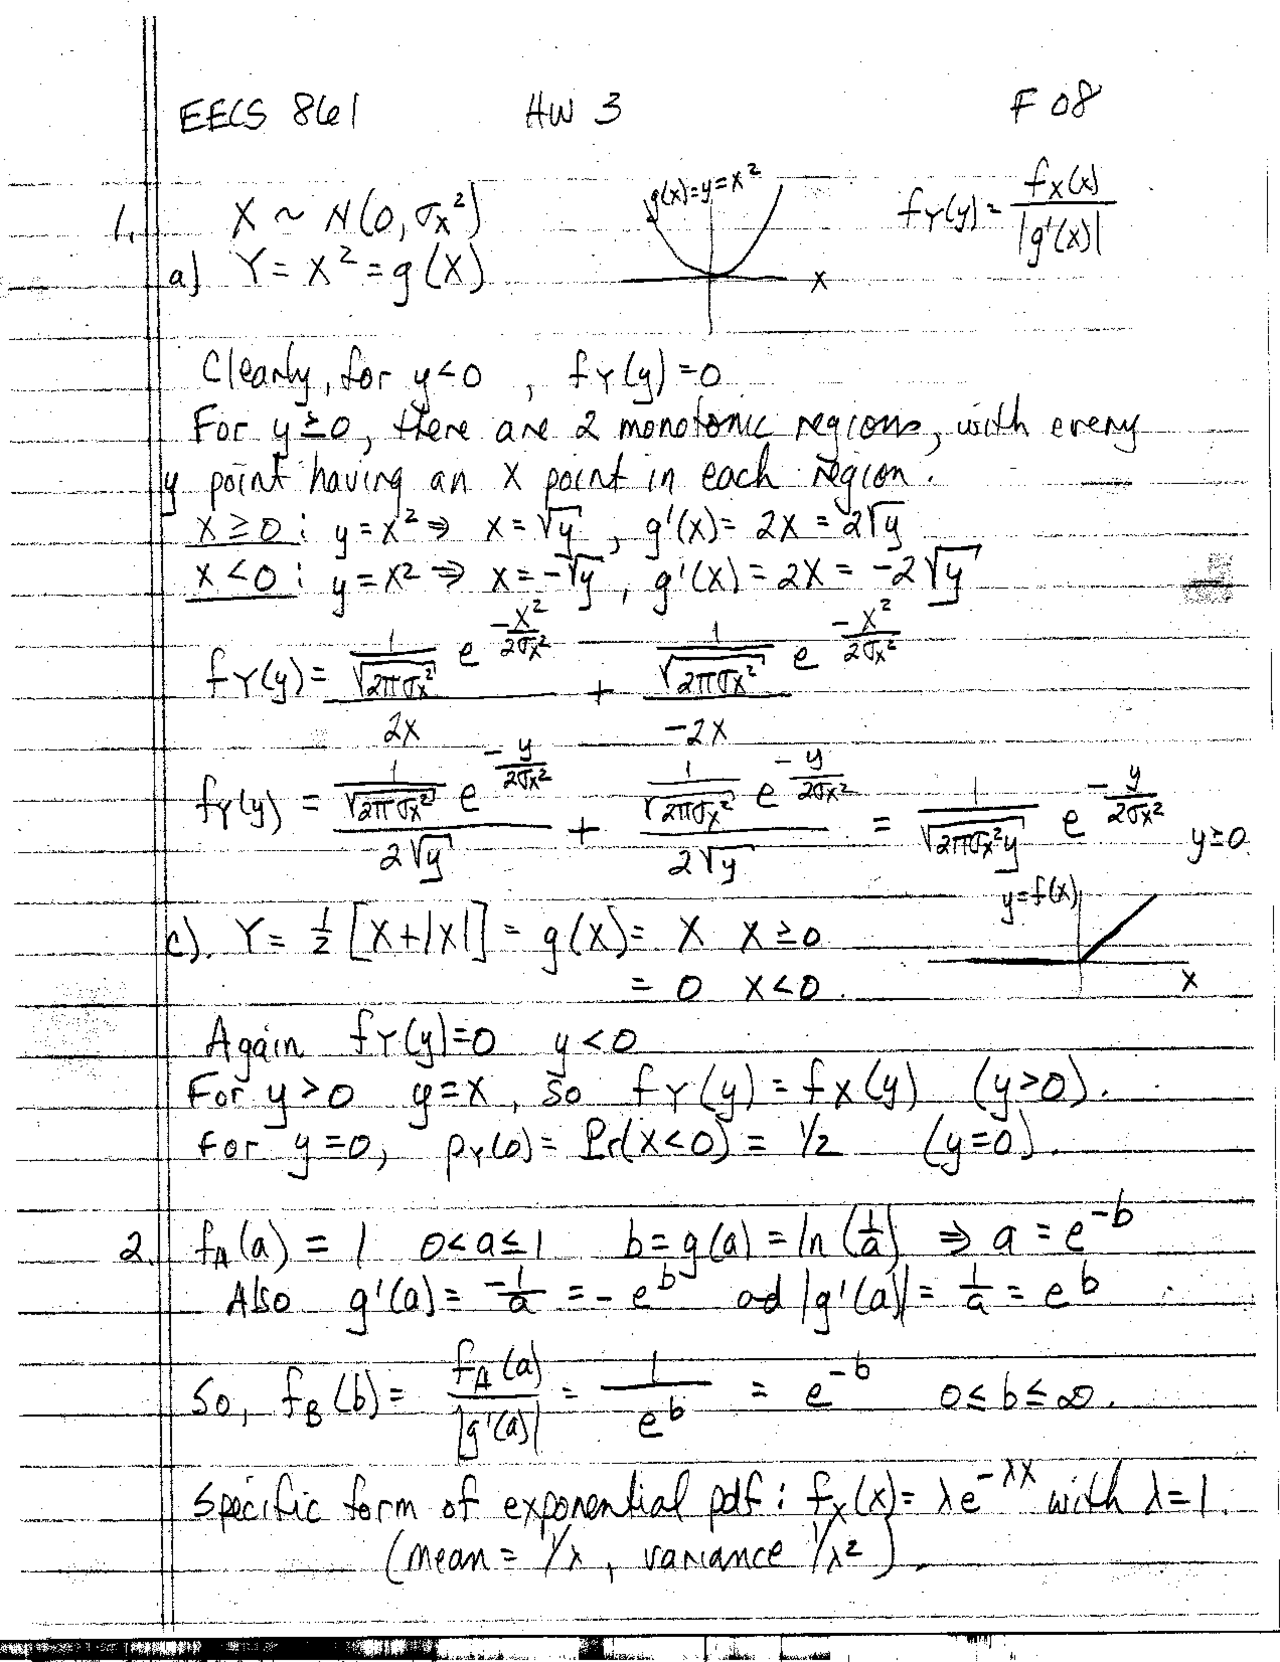 EECS 861 HW 3 F 08
1. X ~ N(0, σx²) g(x)=y=x² fY(y) = fX(x) / |g'(x)|
a) Y = X² = g(X) x
Clearly, for y<0 , fY(y)=0
For y≥0, there are 2 monotonic regions, with every
y point having an x point in each region.
x≥0: y=x² ⇒ x=√y , g'(x)= 2x = 2√y
x<0: y=x² ⇒ x=-√y , g'(x)= 2x = -2√y
fY(y) = (1/√(2πσx²) e^(-x²/2σx²)) / 2x + (1/√(2πσx²) e^(-x²/2σx²)) / -2x
fY(y) = (1/√(2πσx²) e^(-y/2σx²)) / 2√y + (1/√(2πσx²) e^(-y/2σx²)) / 2√y = 1/√(2πσx²y) e^(-y/2σx²) y≥0
y=f(x)
c). Y = 1/2 [X+|X|] = g(x) = X X≥0
= 0 X<0. x
Again fY(y)=0 y<0
For y>0 y=x, so fY(y) = fX(y) (y>0).
For y=0, pY(0) = Pr(X<0) = 1/2 (y=0).
2. fA(a) = 1 0<a≤1 b=g(a)=ln(1/a) ⇒ a = e^-b
Also g'(a) = -1/a = -e^b ad |g'(a)| = 1/a = e^b
So, fB(b) = fA(a) / |g'(a)| = 1 / e^b = e^-b 0≤b≤∞.
Specific form of exponential pdf: fX(x) = λe^-λx with λ=1.
(mean = 1/λ , variance 1/λ²).